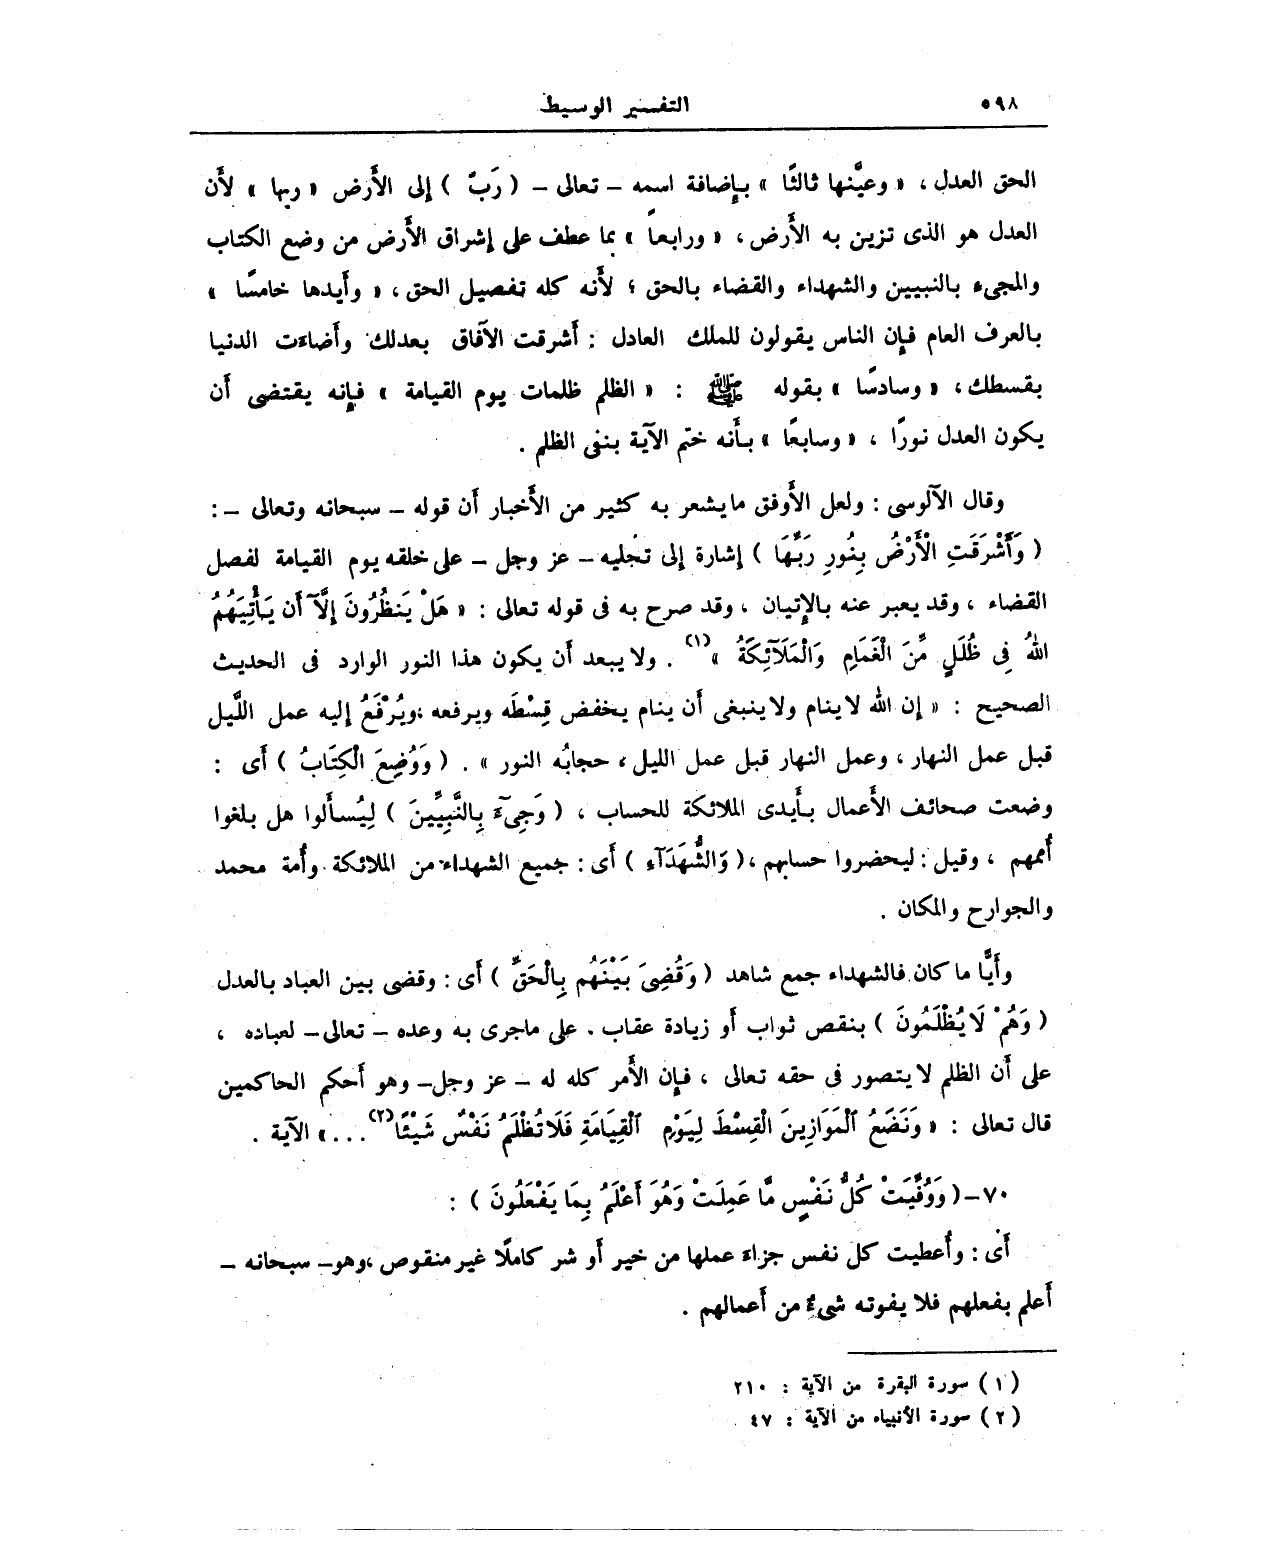 ٥٩٨ التفسير الوسيط
الحق العدل ، « وعيَّنها ثالثًا » بإضافة اسمه – تعالى – ( رَبّ ) إلى الأَرض « ربها » لأَن
العدل هو الذى تزين به الأَرض ، « ورابعاً » بما عطف على إشراق الأَرض من وضع الكتاب
والمجىء بالنبيين والشهداء والقضاء بالحق ؛ لأَنه كله تفصيل الحق ، « وأَيدها خامسًا »
بالعرف العام فإن الناس يقولون للملك العادل : أَشرقت الآفاق بعدلك وأَضاءت الدنيا
بقسطك ، « وسادسًا » بقوله ﷺ : « الظلم ظلمات يوم القيامة » فإنه يقتضى أَن
يكون العدل نورًا ، « وسابعًا » بأَنه ختم الآية بنفى الظلم .
وقال الآلوسى : ولعل الأَوفق ما يشعر به كثير من الأَخبار أَن قوله – سبحانه وتعالى – :
( وَأَشْرَقَتِ الْأَرْضُ بِنُورِ رَبِّهَا ) إشارة إلى تجليه – عز وجل – على خلقه يوم القيامة لفصل
القضاء ، وقد يعبر عنه بالإتيان ، وقد صرح به فى قوله تعالى : « هَلْ يَنظُرُونَ إِلَّآ أَن يَأْتِيَهُمُ
اللهُ فِى ظُلَلٍ مِّنَ الْغَمَامِ وَالْمَلَآئِكَةُ »(١) . ولا يبعد أَن يكون هذا النور الوارد فى الحديث
الصحيح : « إن الله لا ينام ولا ينبغى أَن ينام يخفض قِسْطَه ويرفعه ،ويُرْفَعُ إليه عمل اللَّيل
قبل عمل النهار ، وعمل النهار قبل عمل الليل ، حجابُه النور » . ( وَوُضِعَ الْكِتَابُ ) أَى :
وضعت صحائف الأَعمال بأَيدى الملائكة للحساب ، ( وَجِىٓءَ بِالنَّبِيِّينَ ) لِيُسأَلوا هل بلغوا
أُممهم ، وقيل : ليحضروا حسابهم ، ( وَالشُّهَدَآءِ ) أَى : جميع الشهداء من الملائكة وأُمة محمد
والجوارح والمكان .
وأَيًّا ما كان فالشهداء جمع شاهد ( وَقُضِىَ بَيْنَهُم بِالْحَقِّ ) أَى : وقضى بين العباد بالعدل
( وَهُمْ لَا يُظْلَمُونَ ) بنقص ثواب أَو زيادة عقاب . على ماجرى به وعده – تعالى– لعباده ،
على أَن الظلم لا يتصور فى حقه تعالى ، فإن الأَمر كله له – عز وجل– وهو أَحكم الحاكمين
قال تعالى : « وَنَضَعُ ٱلْمَوَازِينَ الْقِسْطَ لِيَوْمِ ٱلْقِيَامَةِ فَلَا تُظْلَمُ نَفْسٌ شَيْئًا(٢)... » الآية .
٧٠–( وَوُفِّيَتْ كُلُّ نَفْسٍ مَّا عَمِلَتْ وَهُوَ أَعْلَمُ بِمَا يَفْعَلُونَ ) :
أَى : وأُعطيت كل نفس جزاءَ عملها من خير أَو شر كاملًا غير منقوص ،وهو– سبحانه –
أَعلم بفعلهم فلا يفوته شىءٌ من أَعمالهم .
(١) سورة البقرة من الآية : ٢١٠
(٢) سورة الأنبياء من الآية : ٤٧